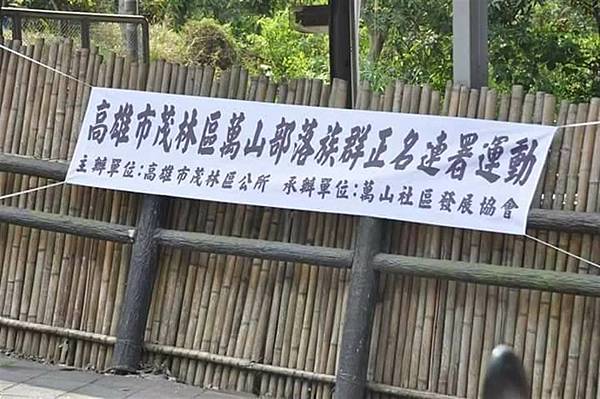 高雄市茂林區萬山部落族群正名連署運動
主辦單位：高雄市茂林區公所　承辦單位：萬山社區發展協會